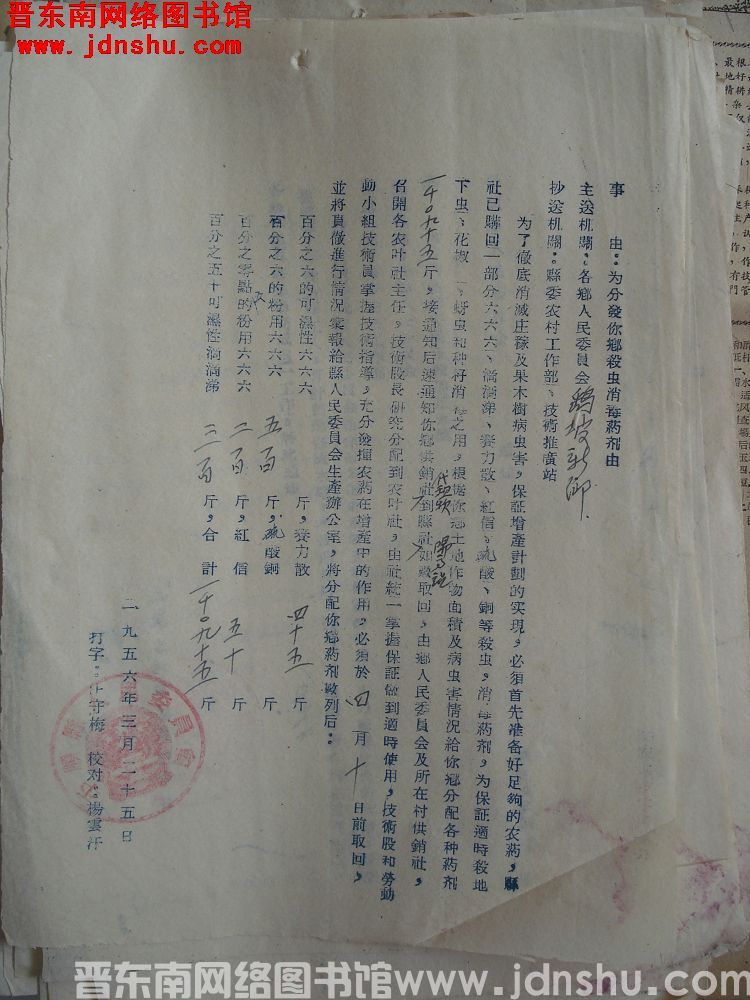 晋东南网络图书馆
www.jdnshu.com
事 由：为分發你鄉殺虫消毒葯剂由
主送机關：各鄉人民委員会
抄送机關：縣委农村工作部、技術推廣站
为了徹底消减庄稼及果木樹病虫害，保証增產計劃的实現，必須首先准备好足夠的农葯，縣
社已購回一部分六六六、滴滴涕、賽力散、紅信、硫酸、銅等殺虫，消毒葯剂，为保証適時殺地
下虫、花椒、蚜虫和种籽消毒之用，根据你鄉土地作物面積及病虫害情况給你鄉分配各种葯剂
一千〇九十五斤，接通知后速通知你鄉供銷社到縣社如数取回，由鄉人民委員会及所在村供銷社，
召開各农叶社主任，技術股長研究分配到农叶社，由社統一掌握保証做到適時使用，技術股和勞動
動小組技術員掌握技術指導，充分發揮农葯在增產中的作用，必須於四月十日前取回，
並將貫徹進行情况彙報給縣人民委員会生產辦公室，將分配你鄉葯剂数列后：
百分之六的可濕性六六六 斤，賽力散 四十五 斤
百分之六的粉用六六六 五百 斤，硫酸銅 斤
百分之零點五的粉用六六六 二百 斤，紅信 五十 斤
百分之五十可濕性滴滴涕 三百 斤，合計 一千〇九十五 斤
一九五六年三月二十五日
打字：王守梅 校对：楊雲汗
晋东南网络图书馆www.jdnshu.com